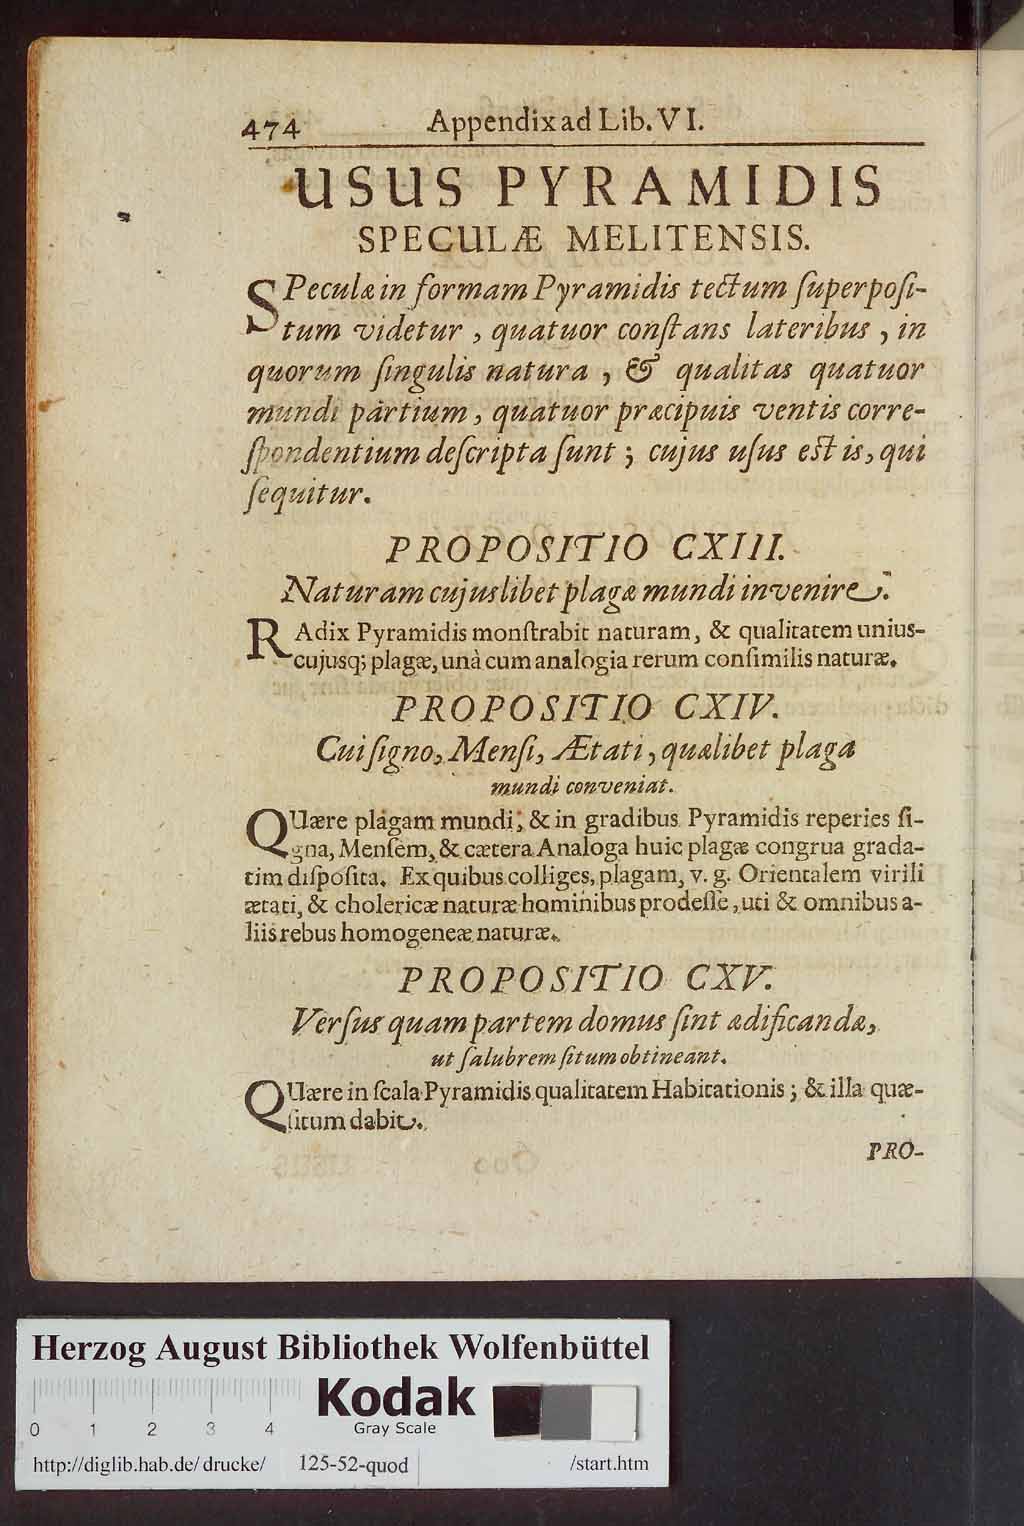 474 Appendix ad Lib. VI.
USUS PYRAMIDIS
SPECULÆ MELITENSIS.
SPeculæ in formam Pyramidis tectum ſuperpoſi-
tum videtur, quatuor conſtans lateribus, in
quorum ſingulis natura, & qualitas quatuor
mundi partium, quatuor præcipuis ventis corre-
ſpondentium deſcripta ſunt; cujus uſus eſt is, qui
ſequitur.
PROPOSITIO CXIII.
Naturam cujuslibet plagæ mundi invenire.
RAdix Pyramidis monſtrabit naturam, & qualitatem unius-
cujusq; plagæ, unà cum analogia rerum conſimilis naturæ.
PROPOSITIO CXIV.
Cui ſigno, Menſi, Ætati, quælibet plaga
mundi conveniat.
QUære plagam mundi, & in gradibus Pyramidis reperies ſi-
gna, Menſem, & cætera Analoga huic plagæ congrua grada-
tim diſpoſita. Ex quibus colliges, plagam, v. g. Orientalem virili
ætati, & cholericæ naturæ hominibus prodeſſe, uti & omnibus a-
liis rebus homogeneæ naturæ.
PROPOSITIO CXV.
Verſus quam partem domus ſint ædificandæ,
ut ſalubrem ſitum obtineant.
QUære in ſcala Pyramidis qualitatem Habitationis; & illa quæ-
ſitum dabit.
PRO-
Herzog August Bibliothek Wolfenbüttel
Kodak
Gray Scale
0 1 2 3 4
http://diglib.hab.de/drucke/ 125-52-quod /start.htm